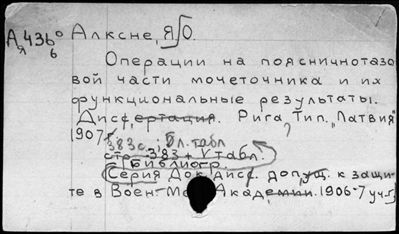 Ая436⁰ Алксне, Я[О.
6
Операции на поясничнотазо
вой части мочеточника и их
функциональные результаты.
Диссертация. Рига, Тип. "Латвия"
1907 г.
383 с.; бл. табл
стр. 383 + V табл.
Библиогр
(Серия Док. дисс. допущ. к защи-
те в Воен.-Мед Академии. 1906-7 уч. г)